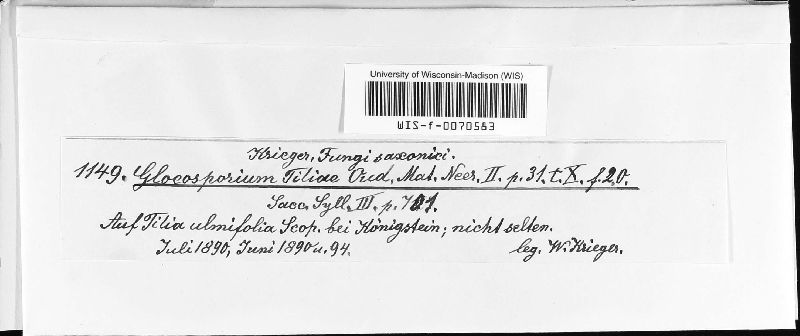 University of Wisconsin-Madison (WIS)
WIS-f-0070563
Krieger, Fungi saxonici.
1149. Gloeosporium Tiliae Oud. Mat. Neer. II. p. 31. t. X. f. 20.
Sacc. Syll. III. p. 701.
Auf Tilia ulmifolia Scop. bei Königstein; nicht selten.
Juli 1890, Juni 1890 u. 94. leg. W. Krieger.